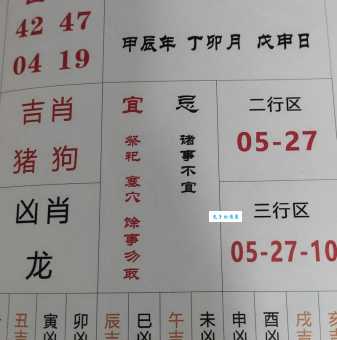 42 47
04 19
甲辰年 丁卯月 戊申日
吉肖
猪 狗
凶肖
龙
宜
祭祀 塞穴 馀事勿取
忌
诸事不宜
二行区
05-27
三行区
05-27-10
丑 寅 卯 辰 巳 午 未 申 酉 戌 亥
吉 凶 凶 吉 凶 吉 凶 凶 凶 吉 吉